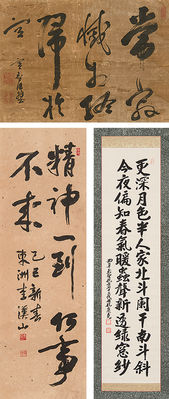 常寂
滅相終
歸於
空
精神一到何事
不成
新春
東洲李溪山
更深月色半人家北斗闌干南斗斜
今夜偏知春氣暖蟲聲新透綠窓紗